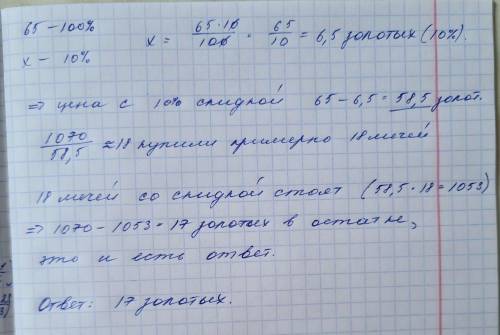 65 – 100%
x – 10%
x = 65·10/100 = 65/10 = 6,5 золотых (10%).
=> цена с 10% скидкой 65 – 6,5 = 58,5 золот.
1070/58,5 ≈ 18 купили примерно 18 мечей
18 мечей со скидкой стоят (58,5 · 18 = 1053)
=> 1070 – 1053 = 17 золотых в остатке,
это и есть ответ.
Ответ: 17 золотых.